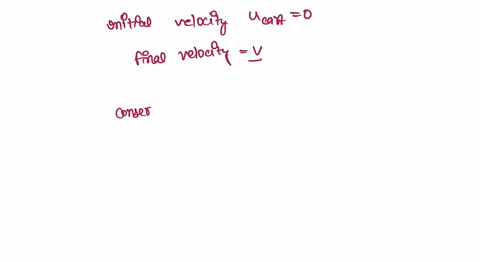 initial velocity u cart = 0
final velocity = v
conser